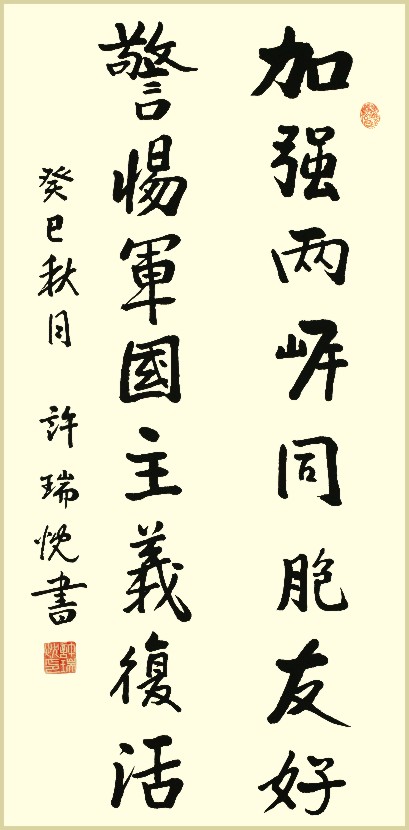 加强两岸同胞友好
警惕軍國主義復活
癸巳秋月 許瑞悅書